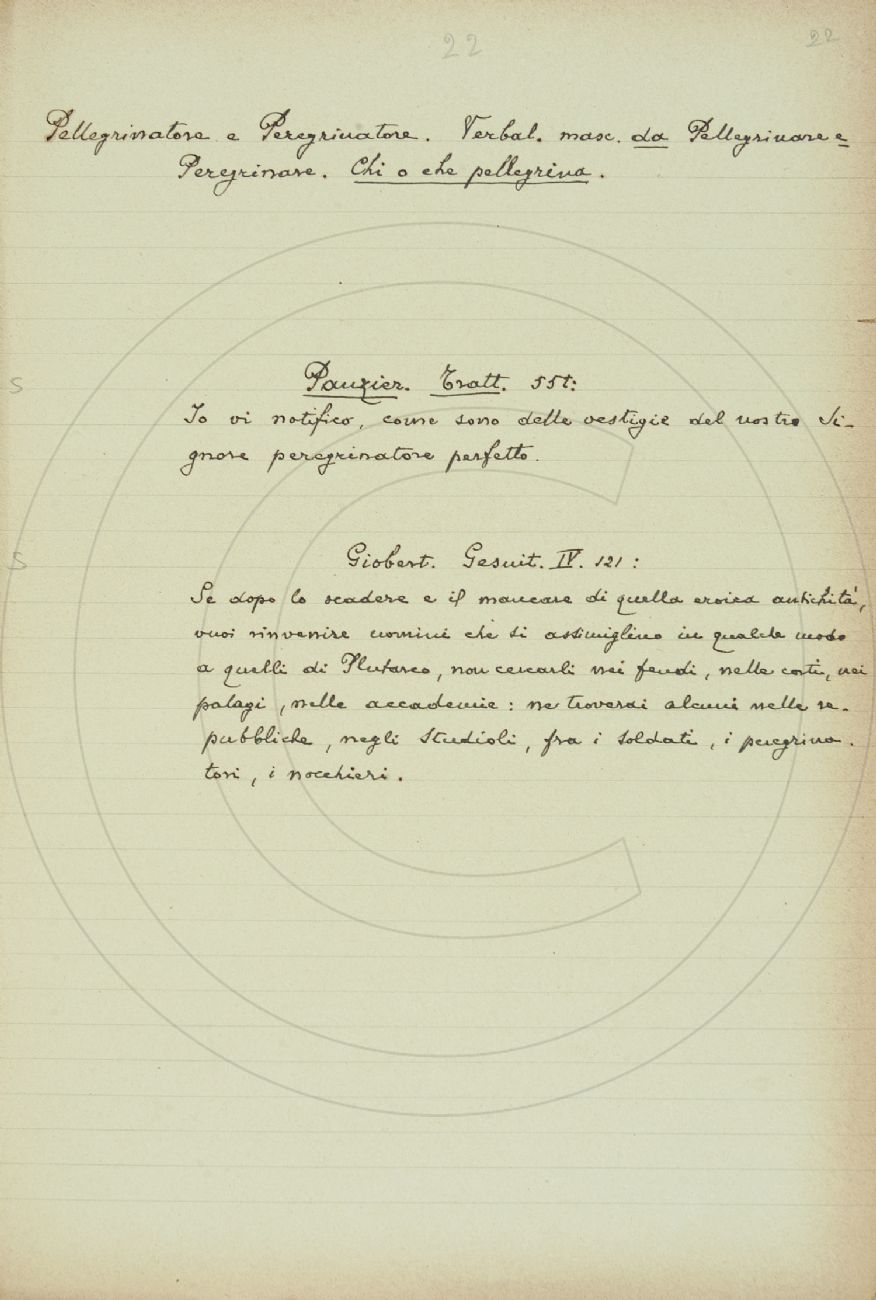 22 22
Pellegrinatore e Peregrinatore. Verbal. masc. da Pellegrinare e
Peregrinare. Chi o che pellegrina.
S Panzier. Tratt. 55t:
Io vi notifico, come sono delle vestigie del nostro Si-
gnore peregrinatore perfetto.
S Giobert. Gesuit. IV. 121:
Se dopo lo scadere e il mancare di quella eroica antichità,
vuoi rinvenire uomini che si assimiglino in qualche modo
a quelli di Plutarco, non cercarli nei feudi, nelle corti, nei
palagi, nelle accademie: ne troverai alcuni nelle re-
pubbliche, negli studioli, fra i soldati, i peregrina-
tori, i nocchieri.